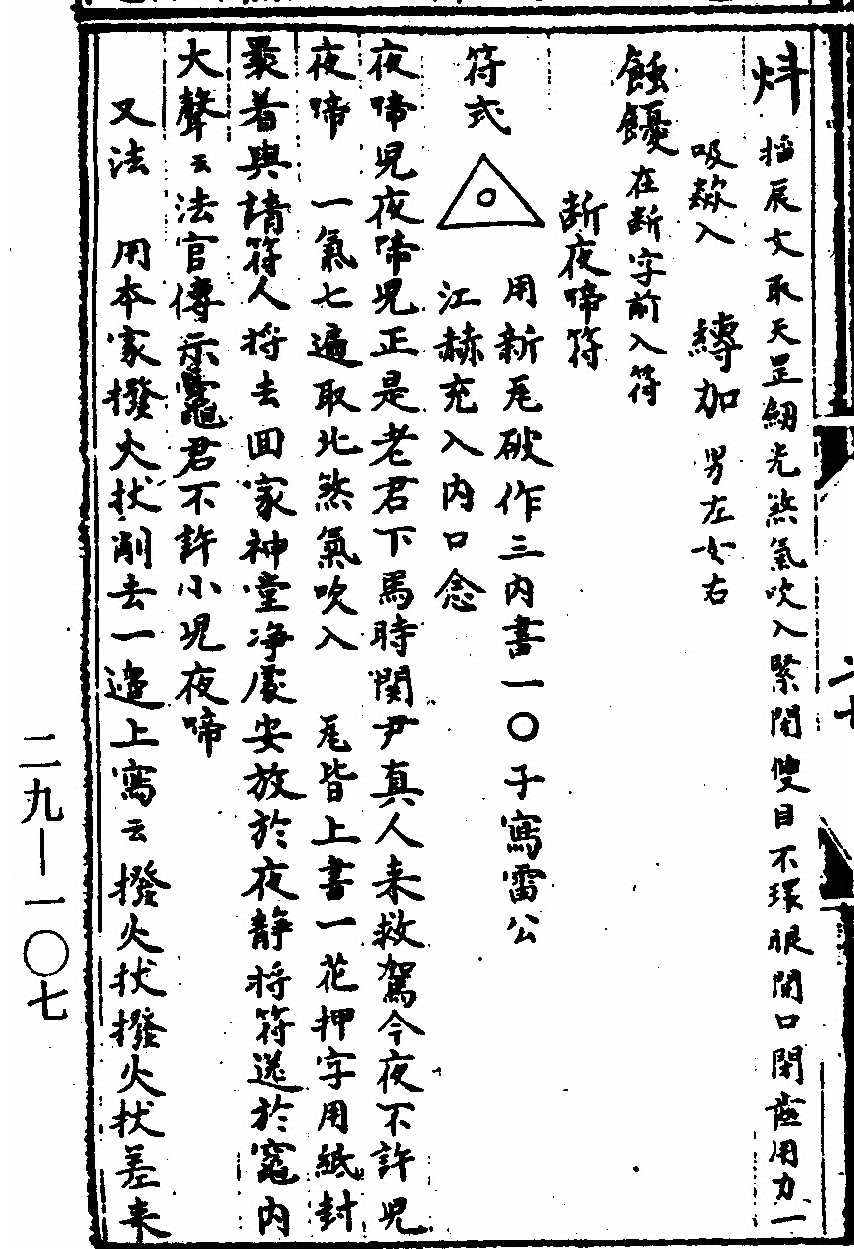 㶡掐辰文取天罡𦁤光煞氣吹入緊閉雙目不環眼閉口閉齒用力一
吸歘入　縛加男左女右
蝕饇在断字前入符
断夜啼符
用新瓦破作三内書一〇子寫雷公
符式　江赫充入内口念
夜啼児夜啼児正是老君下馬時関尹真人来救駕今夜不許児
夜啼　一氣七遍取北煞氣吹入　瓦皆上書一花押字用紙封
裹着與請符人将去回家神堂净處安放於夜静将符送於竈内
大聲云法官傳示竈君不許小児夜啼
又法　用本家撥火杖削去一邉上寫云撥火杖撥火杖差来
二九—一〇七